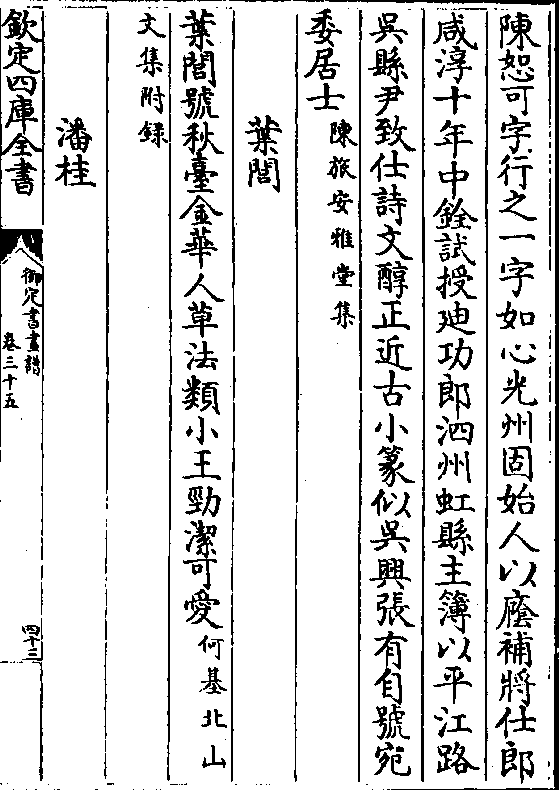 陳恕可字行之一字如心光州固始人以廕補將仕郎
咸淳十年中銓試授廸功郎泗州虹縣主簿以平江路
吳縣尹致仕詩文醇正近古小篆似吳興張有自號宛
委居士陳旅安雅堂集
葉誾
葉誾號秋臺金華人草法類小王勁潔可愛何基北山
文集附錄
潘桂
欽定四庫全書
御定書畫譜
卷三十五
四十三